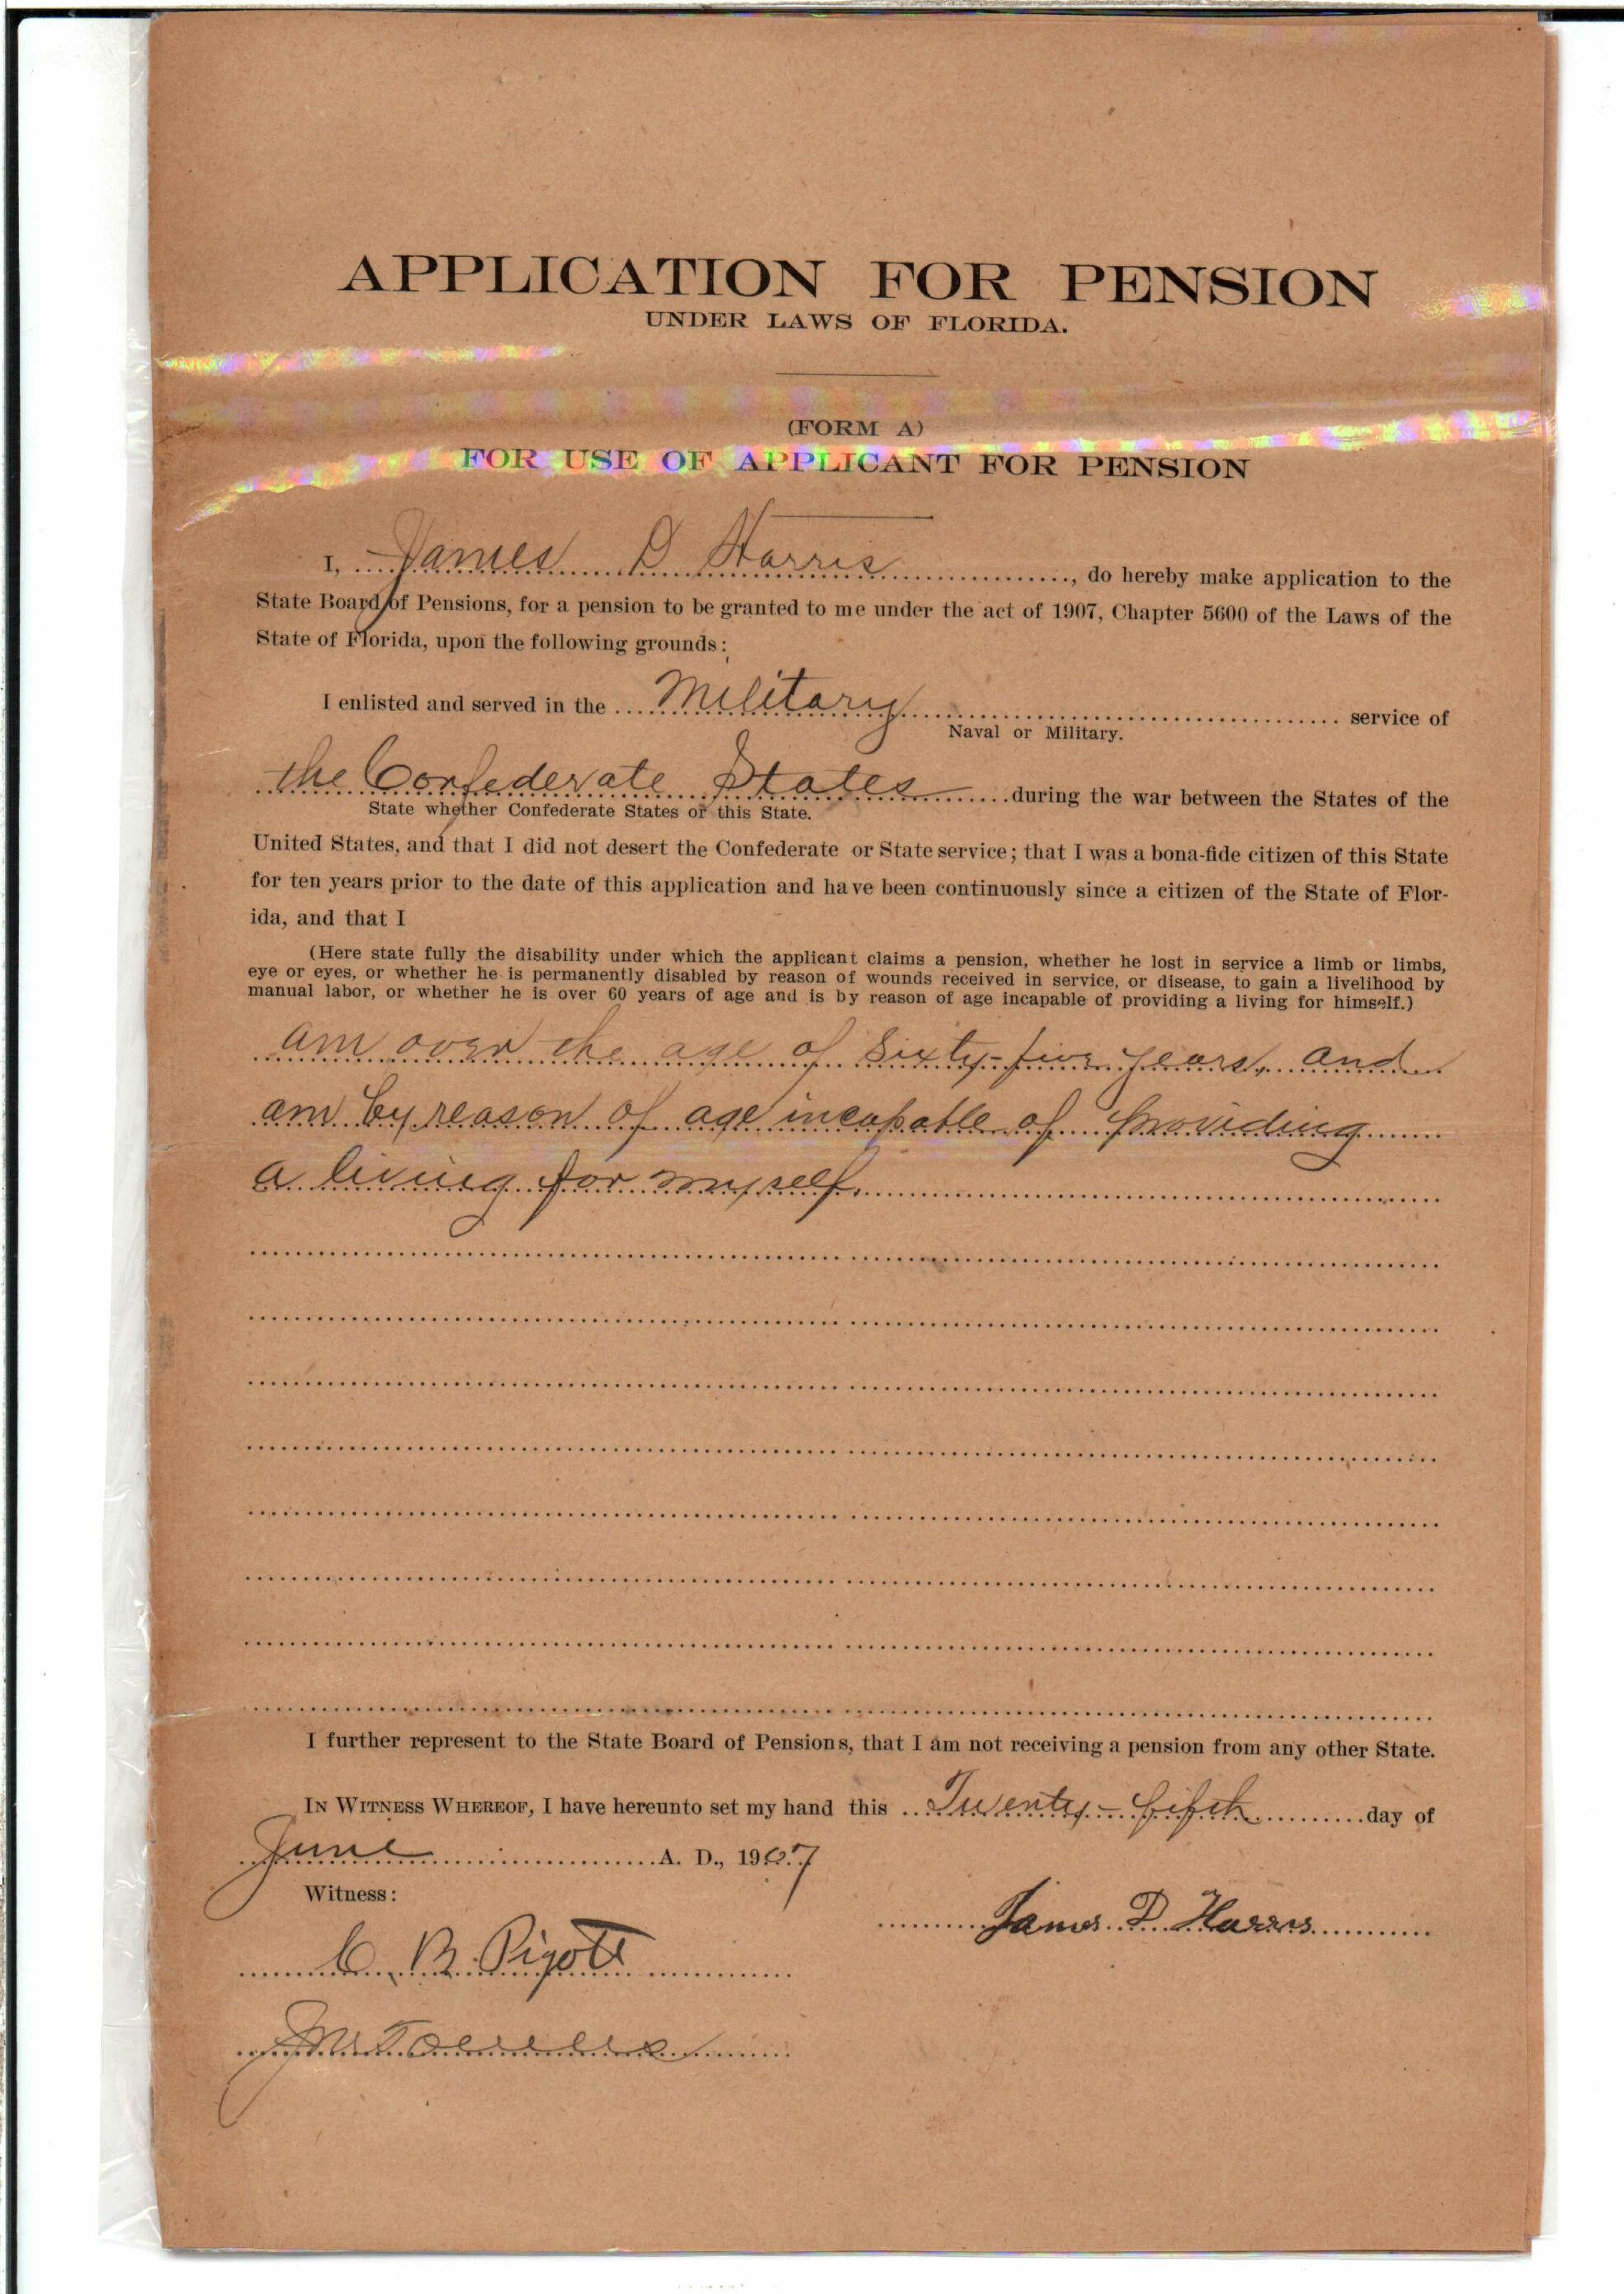 APPLICATION FOR PENSION
UNDER LAWS OF FLORIDA.
(FORM A)
FOR USE OF APPLICANT FOR PENSION
I, James D Harris, do hereby make application to the
State Board of Pensions, for a pension to be granted to me under the act of 1907, Chapter 5600 of the Laws of the
State of Florida, upon the following grounds:
I enlisted and served in the Military service of
Naval or Military.
the Confederate States during the war between the States of the
State whether Confederate States or this State.
United States, and that I did not desert the Confederate or State service; that I was a bona-fide citizen of this State
for ten years prior to the date of this application and have been continuously since a citizen of the State of Flor-
ida, and that I
(Here state fully the disability under which the applicant claims a pension, whether he lost in service a limb or limbs,
eye or eyes, or whether he is permanently disabled by reason of wounds received in service, or disease, to gain a livelihood by
manual labor, or whether he is over 60 years of age and is by reason of age incapable of providing a living for himself.)
am over the age of Sixty-five years, and
am by reason of age incapable of providing
a living for myself.
I further represent to the State Board of Pensions, that I am not receiving a pension from any other State.
IN WITNESS WHEREOF, I have hereunto set my hand this Twenty-fifth day of
June A. D., 1907
Witness:
James D Harris
C. B. Pigott